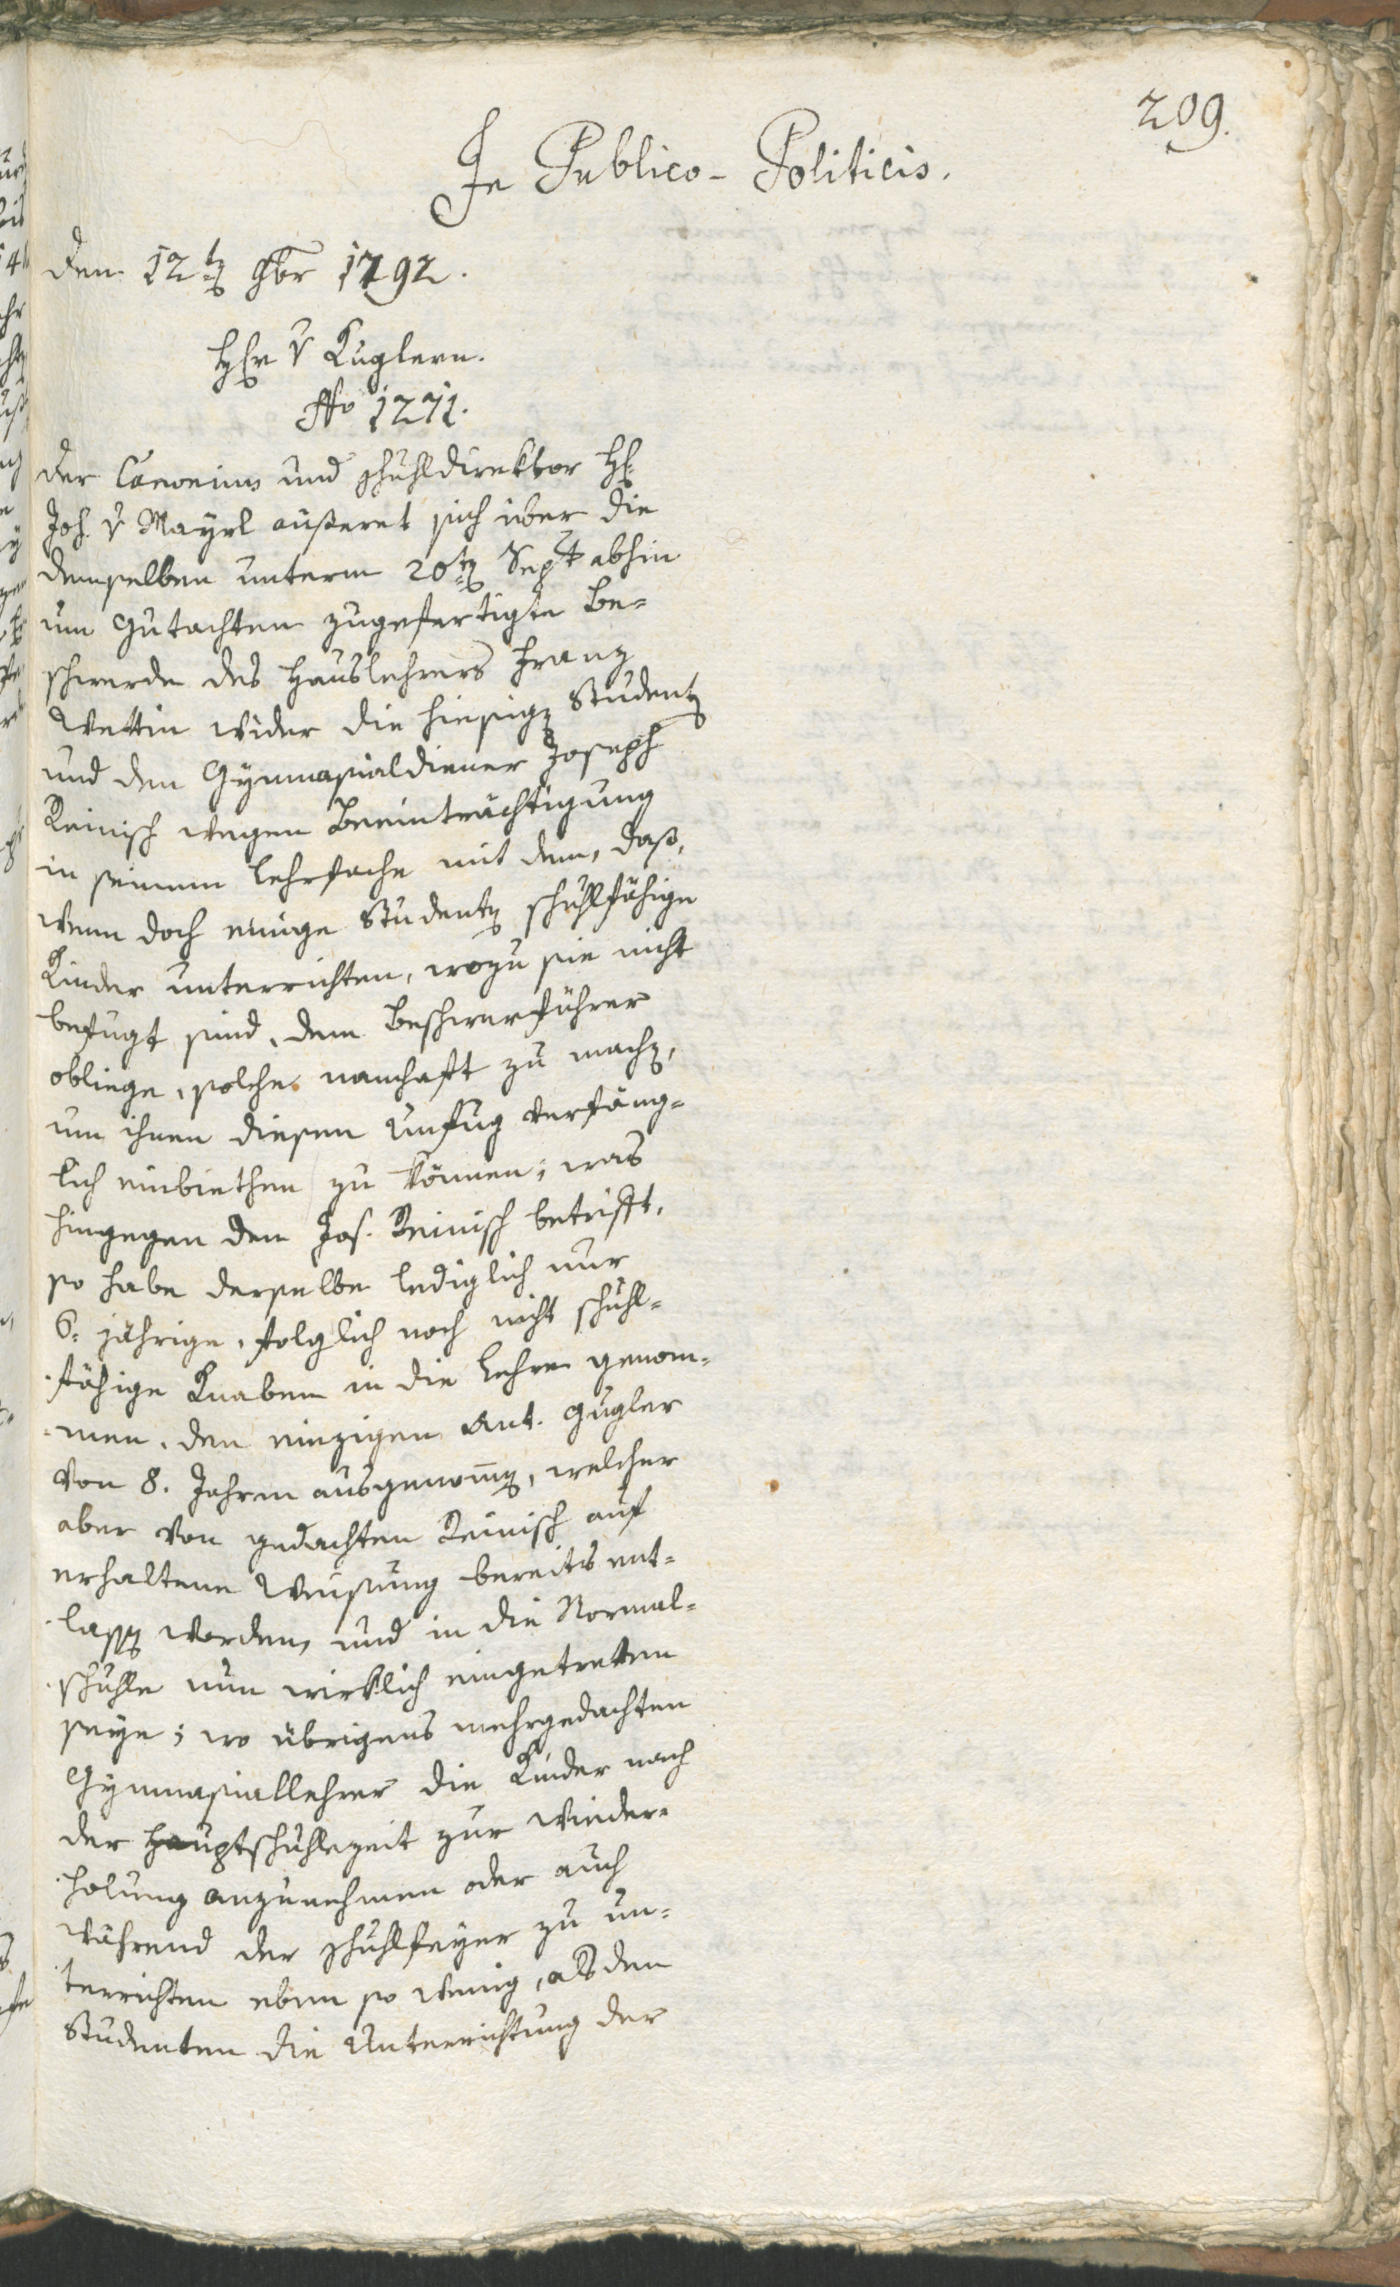 209.
In Publico-Politicis.
Den 12t 9br 1792.
H Er v Kuglern.
No 1271.
Der Canonicus und Schuhldirektor H:
Joh. v Mayrl äußeret sich über die
demselben unterm 20ten Sept abhin
um Gutachten zugefertigte Be=
schwerde des Hauslehrers Franz
Wettin wider die hiesigen Studenten
und den Gymnasialdiener Joseph
Reinisch wegen Beeinträchtigung
in seinem Lehrfache mit dem, daß,
wenn doch einige Studenten schuhlfähige
Kinder unterrichten, wozu sie nicht
befugt sind, dem Beschwerführer
obliege, solche namhaft zu machen,
um ihnen diesen Unfug verfäng=
lich einbiethen zu können; was
hingegen den Jos. Reinisch betrifft,
so habe derselbe lediglich nur
6. jährige, folglich noch nicht schuhl=
fähige Knaben in die Lehre genom=
men, den einzigen Ant. Gugler
von 8. Jahren ausgenommen, welcher
aber von gedachten Reinisch auf
erhaltene Weisung bereits ent=
lassen worden, und in die Normal=
schuhle nun wirklich eingetretten
seye; wo übrigens mehrgedachten
Gymnasiallehrer die Kinder nach
der Hauptschuhlzeit zur Wieder=
holung anzunehmen oder auch
während der Schuhlfeyer zu un=
terrichten eben so wenig, als den
Studenten die Unterrichtung der